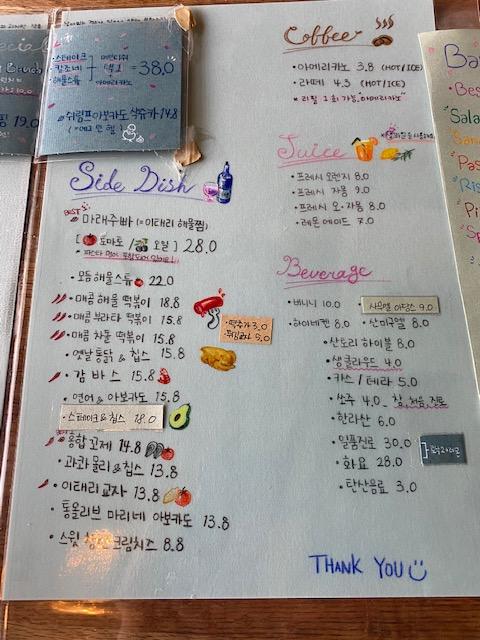 ·스테이크
칼조네
·해물스튜
택1
+
아메리카노
= 38.0
·쉬림프아보카도 샥슈카 14.8
(=에그인헬)
19.0
Side Dish
BEST
마래주빠 (=이태리 해물찜)
[토마토 / 오일] 28.0
·모듬해물스튜 22.0
·매콤 해물 떡볶이 18.8
·매콤 부라타 떡볶이 15.8
·매콤 차돌 떡볶이 15.8
·옛날통닭 & 칩스 15.8
·감바스 15.8
·연어 & 아보카도 15.8
·스테이크&칩스 18.0
·홍합꼬제 14.8
·과콰몰리&칩스 13.8
·이태리교자 13.8
·통올리브 마리네 아보카도 13.8
·스윗 크림치즈 8.8
·떡추가 3.0
5.0
Coffee
·아메리카노 3.8 (HOT/ICE)
·라떼 4.3 (HOT/ICE)
*리필 1회 가능, 아메리카노
Juice
·프레시 오렌지 8.0
·프레시 자몽 9.0
·프레시 오·자몽 8.0
·레몬에이드 7.0
Beverage
·버니니 10.0
사무엘 아담스 9.0
·하이네켄 8.0
·산미구엘 8.0
·산토리 하이볼 8.0
·생클라우드 4.0
·카스 / 테라 5.0
·쏘주 4.0
·한라산 6.0
·일품진로 30.0
·화요 28.0
·탄산음료 3.0
THANK YOU
Bes
Sala
Pas